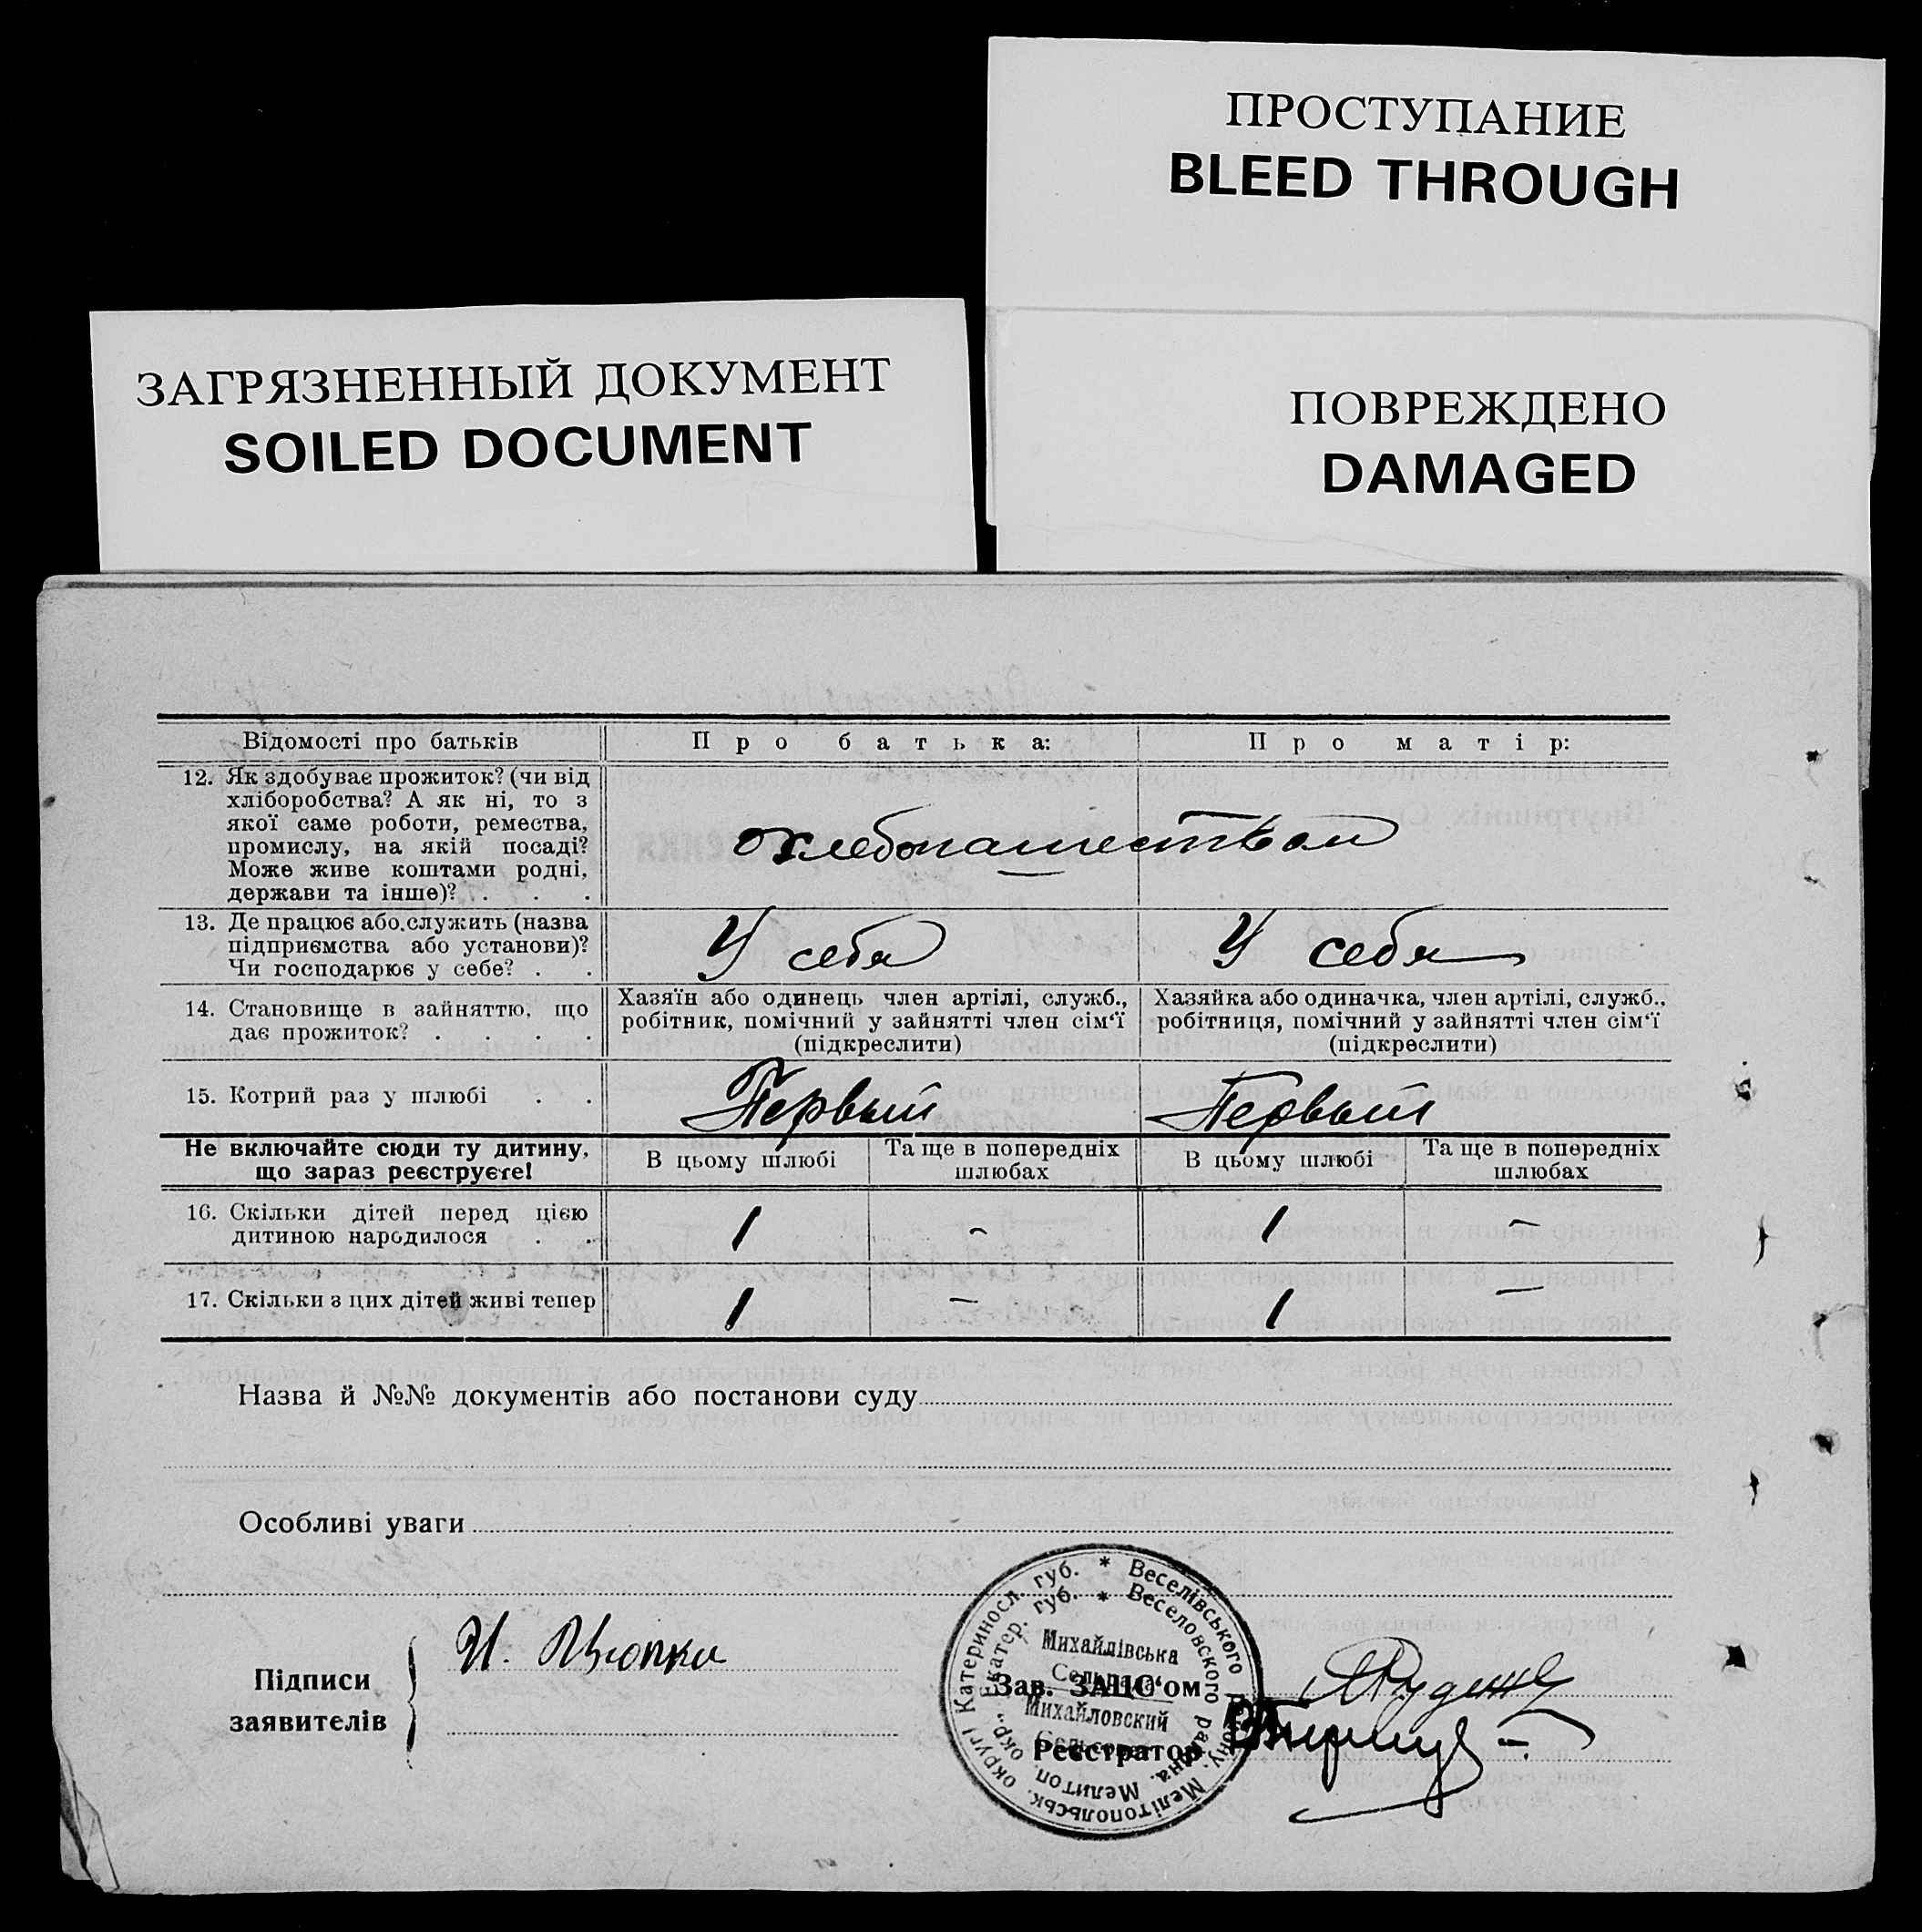 ПРОСТУПАНИЕ
BLEED THROUGH
ЗАГРЯЗНЕННЫЙ ДОКУМЕНТ
SOILED DOCUMENT
ПОВРЕЖДЕНО
DAMAGED
Відомості про батьків Про батька: Про матір:
12. Як здобуває прожиток? (чи від
хліборобства? А як ні, то з
якої саме роботи, ремества,
промислу, на якій посаді?
Може живе коштами родні,
держави та інше)? . . .
охлебопашеством
13. Де працює або служить (назва
підприємства або установи)?
Чи господарює у себе? . .
У себя У себя
14. Становище в зайняттю, що
дає прожиток? . . . .
Хазяїн або одинець член артілі, служб.,
робітник, помічний у зайнятті член сім‘ї
(підкреслити)
Хазяйка або одиначка, член артілі, служб.,
робітниця, помічний у зайнятті член сім‘ї
(підкреслити)
15. Котрий раз у шлюбі . . Первый Первый
Не включайте сюди ту дитину,
що зараз реєструєте!
В цьому шлюбі
Та ще в попередніх
шлюбах
В цьому шлюбі
Та ще в попередніх
шлюбах
16. Скільки дітей перед цією
дитиною народилося . .
1 - 1 -
17. Скільки з цих дітей живі тепер 1 - 1 -
Назва й №№ документів або постанови суду
Особливі уваги
Підписи
заявителів
И.
Зав. ЗАЦС‘ом
Реєстратор
Катериносл. губ. * Веселівського району, Мелітопольськ. округі
Екатер. губ. * Веселовского района, Мелитоп. окр.,
Михайлівська
Михайловский